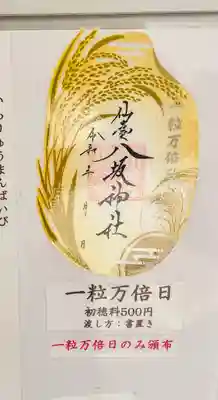 一粒万倍日
仙臺八坂神社
令和 年 月 日
いちりゅうまんばいび
一粒万倍日
初穂料500円
渡し方：書置き
一粒万倍日のみ頒布